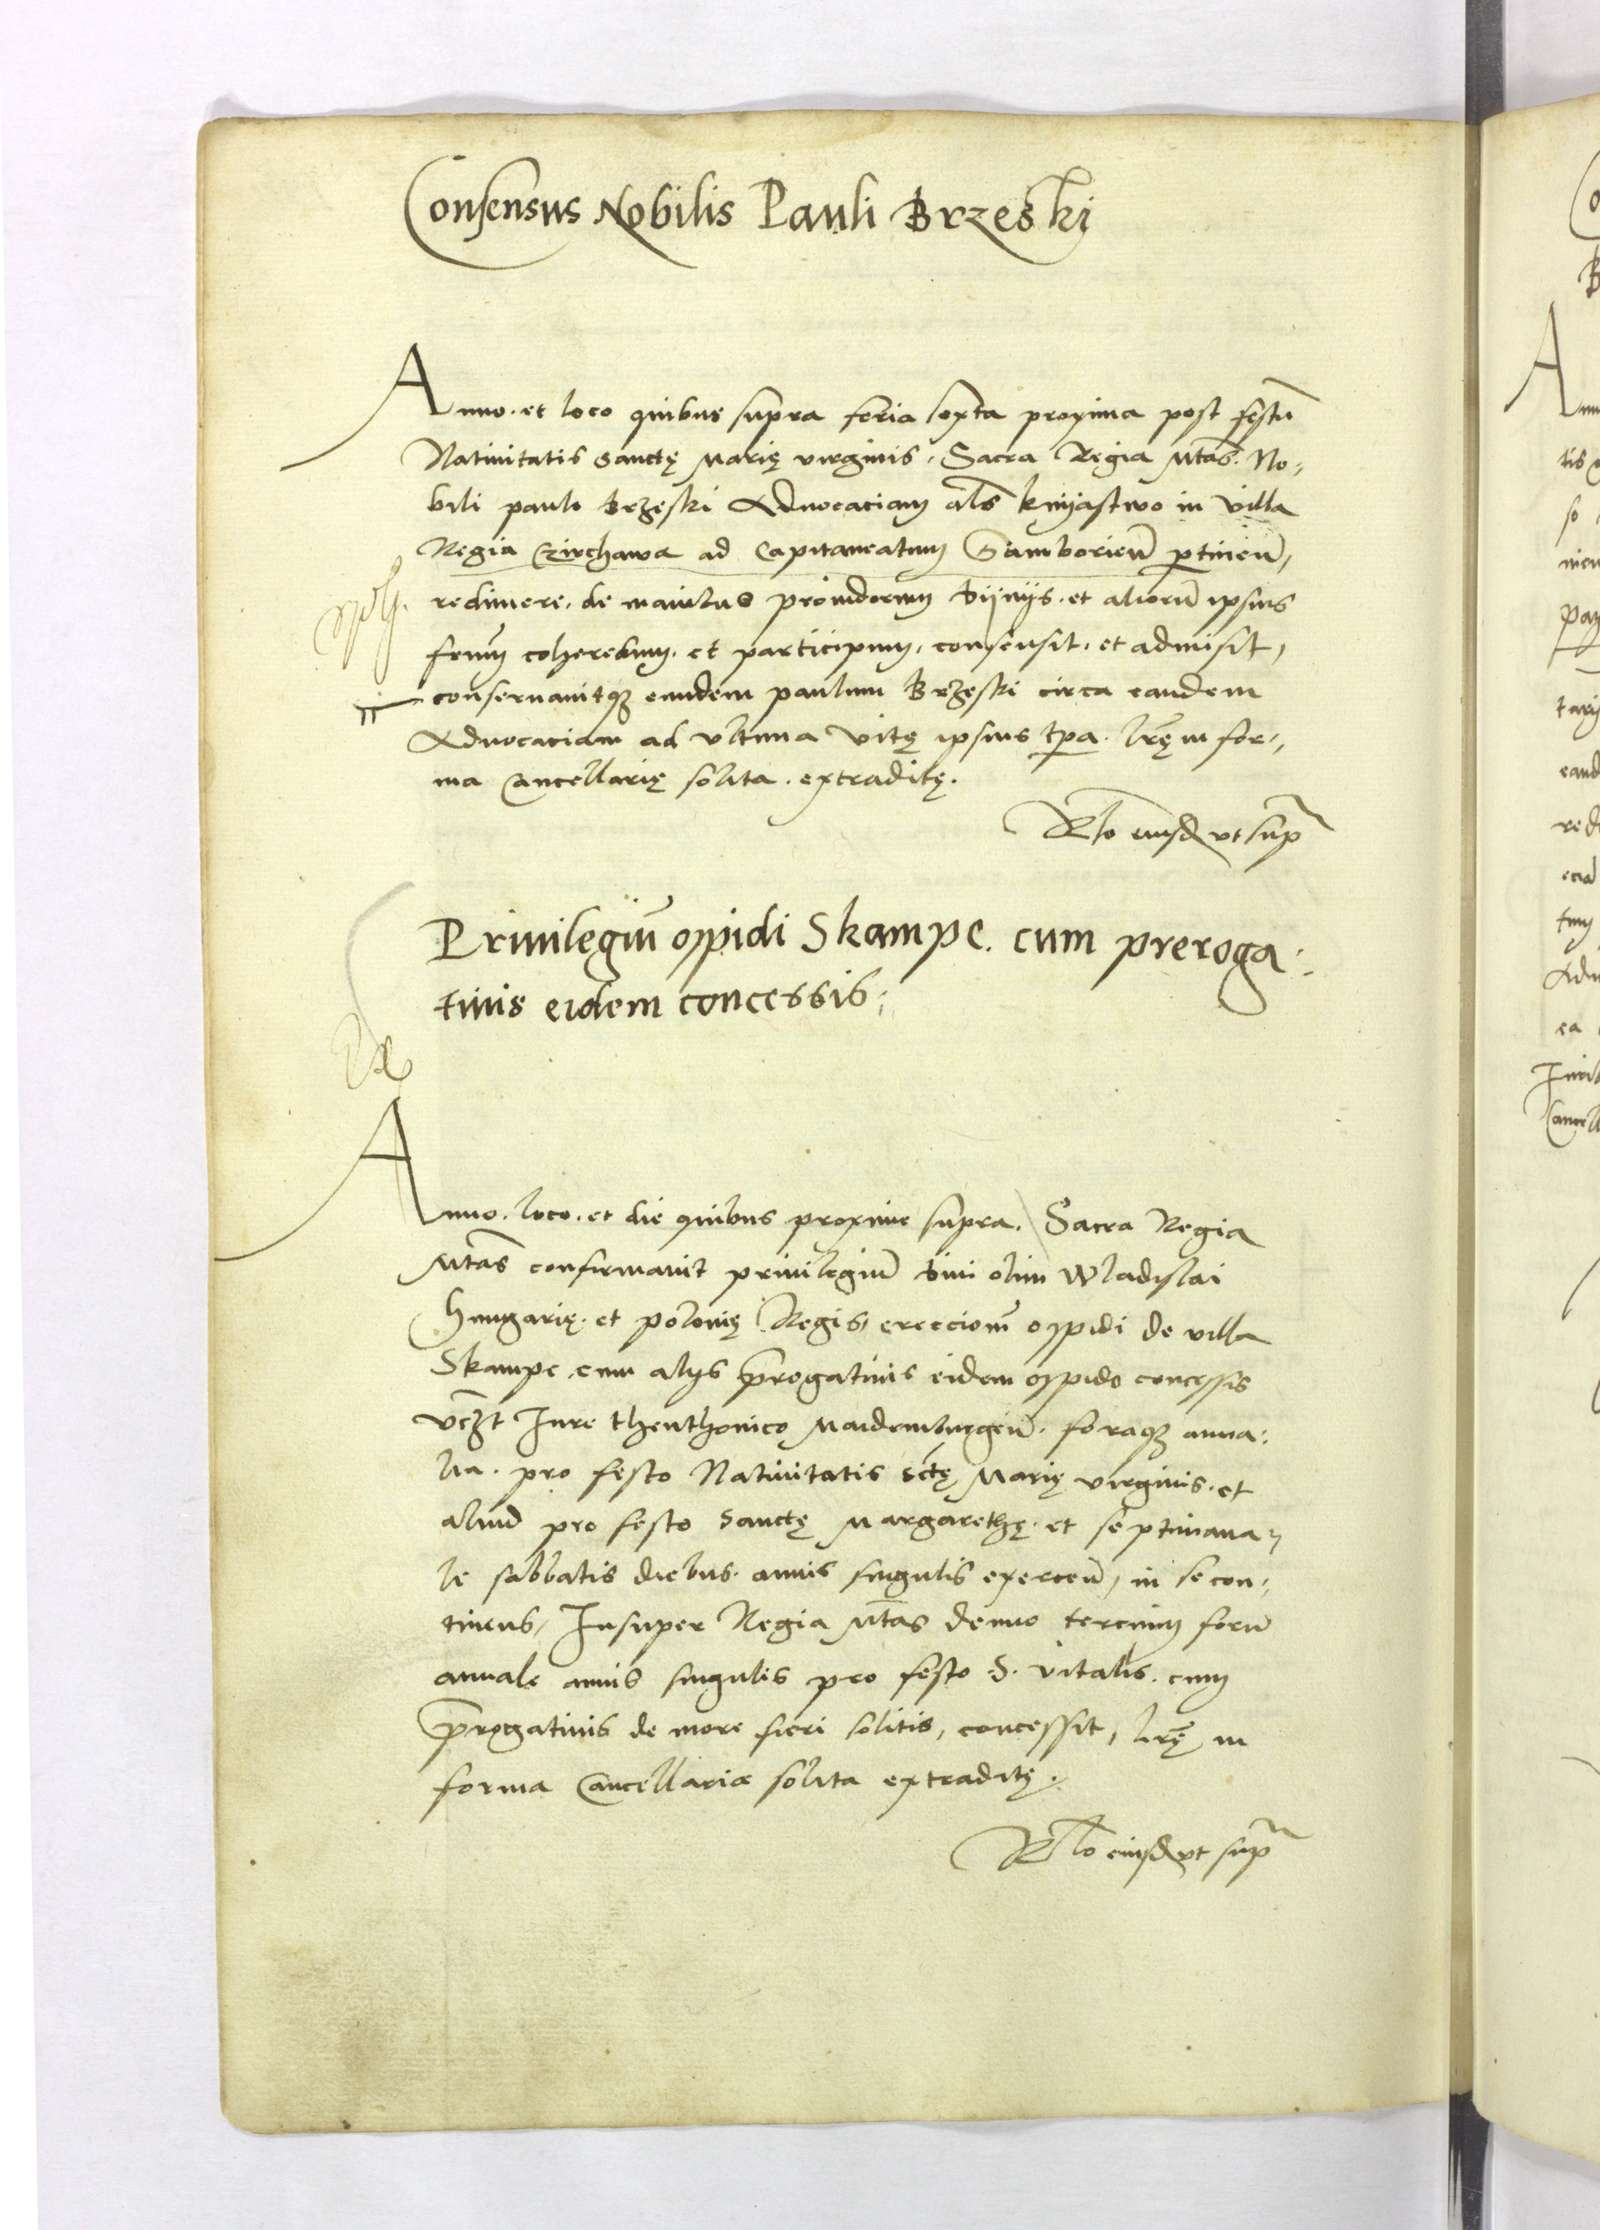 Consensus Nobilis Pauli Brzeski
Anno. et loco quibus supra feria sexta proxima post festū
Natiuitatis sanctę Marię virginis, Sacra Regia Mtas. No,
bili paulo Brzeski Aduocaciam als knyastwo in villa
Regia Czirchawa ad Capitaneatum Samborien̄ ptinen̄,
redimere, de manibus prouidorum et aliorū ipsius
coheredum, et participum, consensit, et admisit,
conseruauitqz eundem paulum Brzeski circa eandem
Aduocaciam ad vltima vitę ipsius tpa. lrę in for,,
ma Cancellarię solita. extraditę.
Rlo eiusd vt sup
Priuilegiū oppidi Skampe. cum preroga:
tiuis eidem concessis:
Anno. loco. et die quibus proxime supra. Sacra Regia
Mtas confirmauit priuilegiū diui olim Wladislai
Hungarię. et Polonię Regis, ereccionē oppidi de villa
Skampe, cum alijs progatiuis eidem oppido concessis
vczt Iure thenthonico Maidemburgen̄. foraqz annua:
lia. pro festo Natiuitatis Sctę Marię virginis. et
aliud pro festo Sanctę Margarethę. et septimana,
le sabbatis diebus. annis singulis exercen̄, in se con,
tinens, Insuper Regia Mtas denuo tercium forū
annale annis singulis pro festo S. Vitalis. cum
progatiuis de more fieri solitis, concessit, lrę in
forma Cancellariæ solita extraditę.
Rlo eiusd vt sup